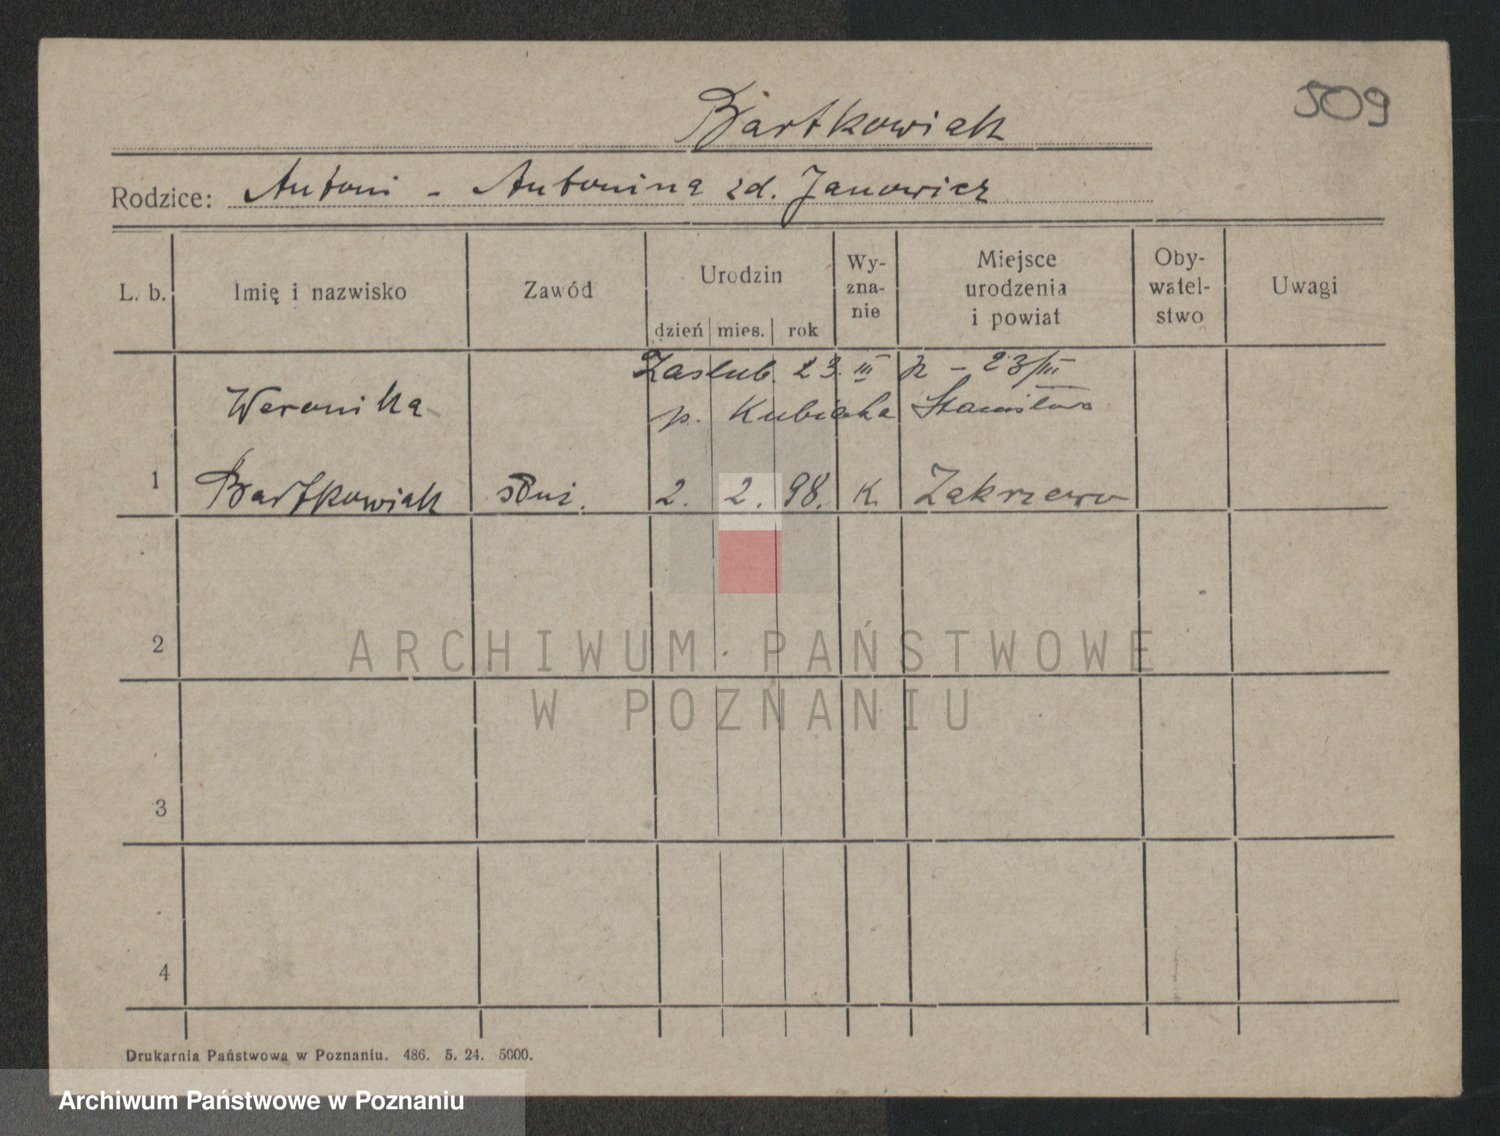 Bartkowiak
509
Rodzice: Antoni - Antonina zd. Janowicz
L. b. Imię i nazwisko Zawód Urodzin dzień mies. rok Wy-zna-nie Miejsce urodzenia i powiat Oby-watel-stwo Uwagi
Zaślub. 23. III 23/III
Weronika p. Kubiaka Stanisława
1 Bartkowiak służ. 2. 2. 98. K. Zakrzewo
2
ARCHIWUM PAŃSTWOWE
W POZNANIU
3
4
Drukarnia Państwowa w Poznaniu. 486. 5. 24. 5000.
Archiwum Państwowe w Poznaniu